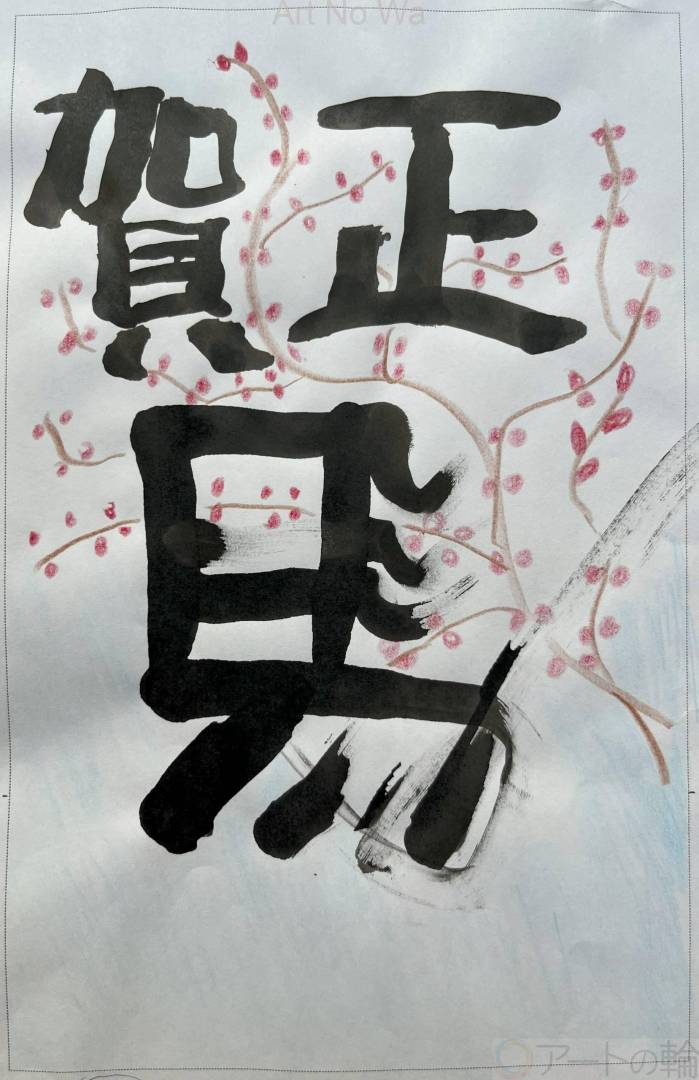 Art No Wa
正賀
馬
アートの輪